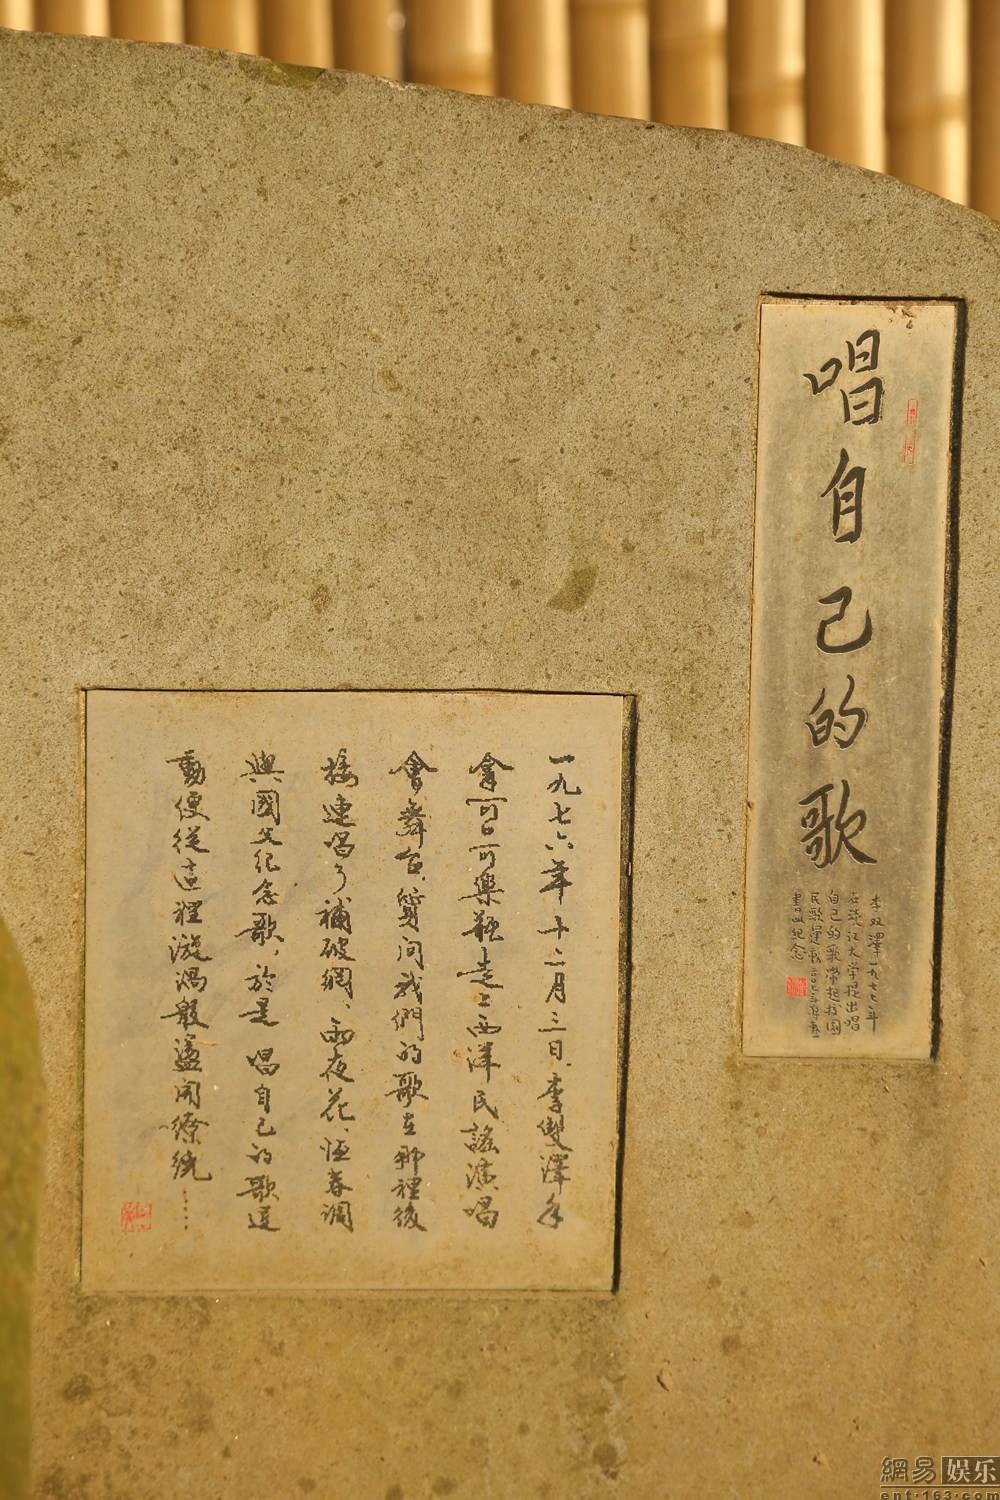 唱自己的歌
李双澤一九七七年
在淡江大学提出唱
自己的歌帶起校園
書以紀念
一九七六年十二月三日李雙澤手
拿可口可樂瓶走上西洋民謠演唱
會舞台、質问我們的歌在那裡後
接連唱了補破網、雨夜花、恆春调
與國父纪念歌、於是 唱自己的歌運
動便從這裡漩渦般盪開繚繞……
網易娱乐
ent.163.com